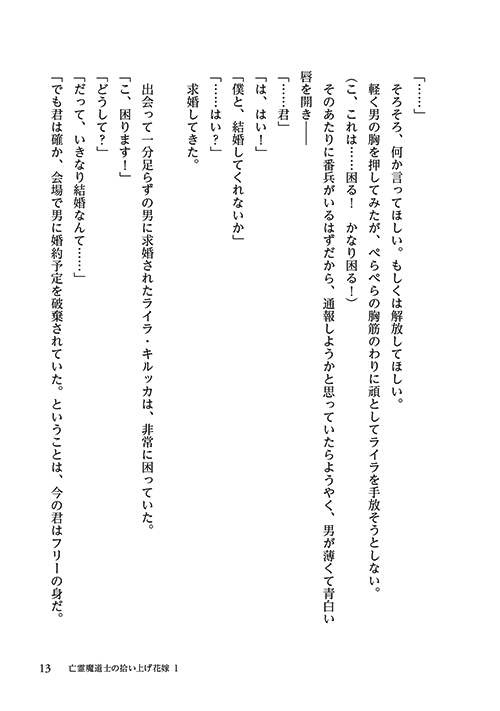 「……」
そろそろ、何か言ってほしい。もしくは解放してほしい。
軽く男の胸を押してみたが、ぺらぺらの胸筋のわりに頑としてライラを手放そうとしない。
(こ、これは……困る! かなり困る!)
そのあたりに番兵がいるはずだから、通報しようかと思っていたらようやく、男が薄くて青白い
唇を開き――
「……君」
「は、はい!」
「僕と、結婚してくれないか」
「……はい?」
求婚してきた。
出会って一分足らずの男に求婚されたライラ・キルッカは、非常に困っていた。
「こ、困ります!」
「どうして?」
「だって、いきなり結婚なんて……」
「でも君は確か、会場で男に婚約予定を破棄されていた。ということは、今の君はフリーの身だ。
13 亡霊魔道士の拾い上げ花嫁 1